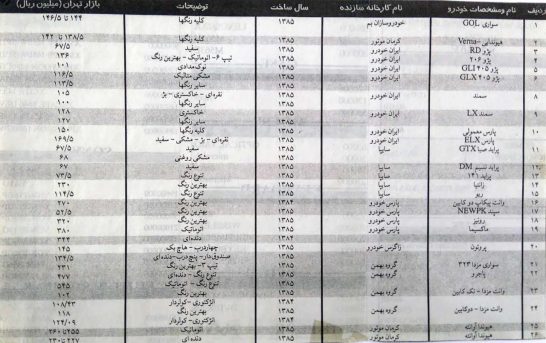 ردیف نام ومشخصات خودرو نام کارخانه سازنده سال ساخت توضیحات بازار تهران (میلیون ریال)
۱ سواری GOL خودروسازان بم ۱۳۸۵ کلیه رنگها ۱۴۴ تا ۱۴۶/۵
۲ هیوندایی -Verna کرمان موتور ۱۳۸۵ کلیه رنگها ۱۳۸/۵ تا ۱۴۲
۳ پژو RD ایران خودرو ۱۳۸۵ سفید ۶۷/۵
۴ پژو ۲۰۶ ایران خودرو ۱۳۸۵ تیپ ۶- اتوماتیک - بهترین رنگ ۱۳۶
۵ پژو ۴۰۵ GLI ایران خودرو ۱۳۸۵ نوک‌مدادی ۱۰۱
۶ پژو ۴۰۵ GLX ایران خودرو ۱۳۸۵ مشکی متالیک ۱۱۶/۵
۱۳۸۵ سایر رنگها ۱۱۳/۵
۸ سمند ایران خودرو ۱۳۸۵ نقره‌ای - خاکستری - بژ ۱۰۵
۱۳۸۵ سایر رنگها ۱۰۰
۹ سمند LX ایران خودرو ۱۳۸۵ خاکستری ۱۲۸
۱۳۸۵ سایر رنگها ۱۲۷
۱۰ پارس معمولی ایران خودرو ۱۳۸۵ کلیه رنگها ۱۵۰
پارس ELX ایران خودرو ۱۳۸۵ نقره‌ای - بژ - مشکی - سفید ۱۶۹/۵
۱۱ پراید صبا GTX سایپا ۱۳۸۵ سفید ۶۷/۵
۱۳۸۵ مشکی روغنی ۶۸
۱۲ پراید نسیم DM سایپا ۱۳۸۵ سفید ۶۷
۱۳ پراید ۱۴۱ سایپا ۱۳۸۵ تنوع رنگ ۷۳/۵
۱۴ زانتیا سایپا ۱۳۸۵ بهترین رنگ ۲۳۰
۱۵ ریو سایپا ۱۳۸۵ تنوع رنگ ۱۱۴/۵
۱۶ وانت پیکاپ دو کابین پارس خودرو ۱۳۸۴ بهترین رنگ ۲۷۰
۱۷ سپند NEWPK پارس خودرو ۱۳۸۵ بهترین رنگ ۵۲/۵
۱۸ رونیز پارس خودرو ۱۳۸۵ بهترین رنگ ۳۲۰
۱۹ ماکسیما پارس خودرو ۱۳۸۵ اتوماتیک ۳۸۰
۱۳۸۴ دنده‌ای ۳۴۳
۲۰ پروتون زاگرس خودرو ۱۳۸۵ چهاردرب - هاچ بک ۱۴۵
۱۳۸۵ صندوق‌دار - پنج‌درب - دنده‌ای ۱۳۴/۵
۲۱ سواری مزدا ۳۲۳ گروه بهمن ۱۳۸۵ تیپ ۳- بهترین رنگ ۲۳۱
۲۲ پاجرو گروه بهمن ۱۳۸۵ تنوع رنگ - دنده‌ای ۴۷۷
۱۳۸۵ تنوع رنگ - اتوماتیک ۵۴۵
۲۳ وانت مزدا - تک کابین گروه بهمن ۱۳۸۵ بهترین رنگ ۱۰۲
۱۳۸۴ انژکتوری - کولردار ۱۰۸/۴۳
۲۴ وانت مزدا - دوکابین گروه بهمن ۱۳۸۴ بهترین رنگ ۱۱۸
۱۳۸۴ انژکتوری - کولردار ۱۲۴/۰۹
۲۵ هیوندا آوانته کرمان موتور ۱۳۸۵ اتوماتیک ۲۵۵ تا ۲۶۰
۲۶ هیوندا آوانته کرمان موتور ۱۳۸۵ دنده ای ۲۲۷ تا ۲۳۰